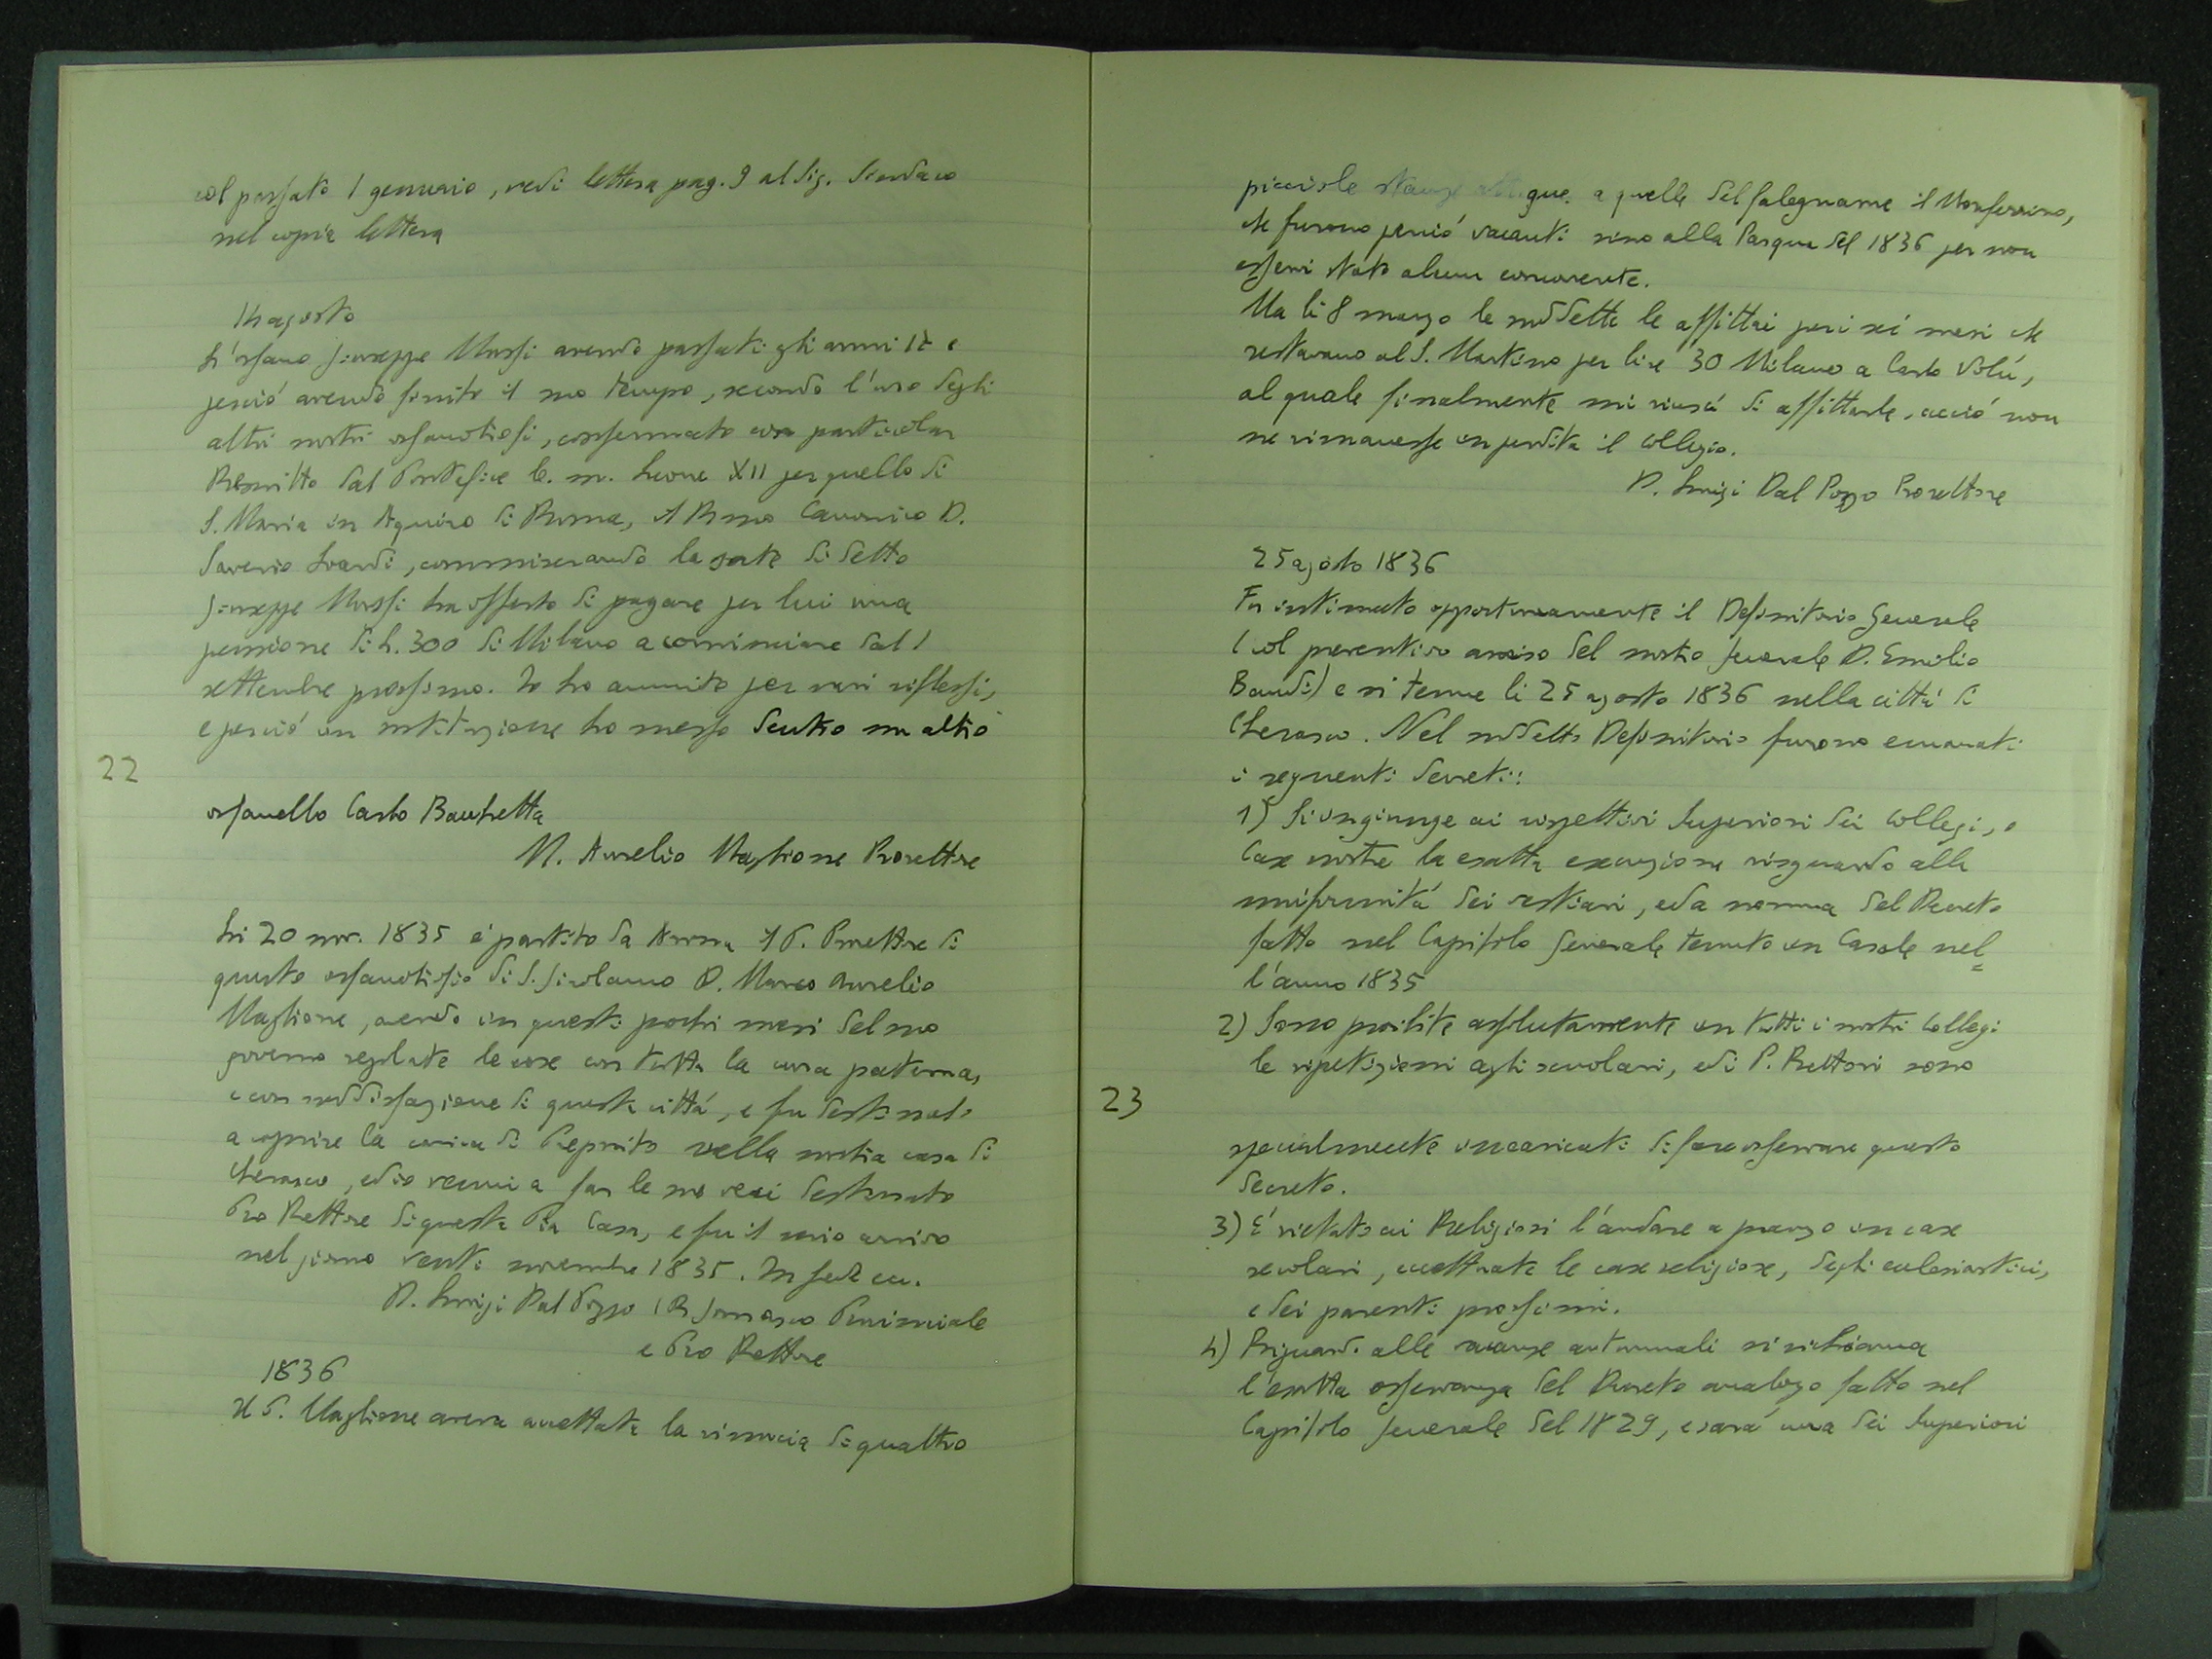 col passato 1 gennaio, vedi lettera pag. 9 al Sig. Sindaco
nel copia lettera
14 agosto
L'orfano Giuseppe Massi avendo passati gli anni 12 e
perciò avendo finito il suo tempo, secondo l'uso degli
altri nostri orfanotrofi, confermato con particolar
Rescritto dal Pontefice b. m. Leone XII per quello di
S. Maria in Aquiro di Roma, il Rmo Canonico D.
Saverio, commiserando la sorte di detto
Giuseppe Massi ha offerto di pagare per lui una
pensione di L. 300 di Milano a cominciare dal 1
settembre prossimo. Io ho annuito per vari riflessi,
e perciò in sostituzione ho messo dentro un altro
22
orfanello Carlo Bacchetta
M. Aurelio Maglione Prorettore
Li 20 nov. 1835 è partito da Arona il P. Prorettore di
questo orfanotrofio di S. Girolamo D. Marco Aurelio
Maglione, avendo in questi pochi mesi del suo
governo regolate le cose con tutta la cura paterna,
e con soddisfazione di questa città, e fu destinato
a coprire la carica di Preposito nella nostra casa di
Cherasco, ed io venni a far le sue veci destinato
Pro Rettore di questa Pia Casa, e fu il mio arrivo
nel giorno venti novembre 1835. In fede ecc.
D. Luigi Dal Pozzo C.R. Somasco Provinciale
e Pro Rettore
1836
Il P. Maglione aveva accettata la rinuncia di quattro
picciole stanze attigue a quelle del falegname il Monferrino,
che furono perciò vacanti sino alla Pasqua del 1836 per non
esservi stato alcun concorrente.
Ma li 8 marzo le suddette le affittai per i sei mesi che
restavano al S. Martino per lire 30 Milano a Carlo Volú,
al quale finalmente mi riuscì di affittarle, acciò non
ne rimanesse in perdita il collegio.
D. Luigi Dal Pozzo Prorettore
25 agosto 1836
Fu intimato opportunamente il Definitorio Generale
(col preventivo avviso del nostro Generale D. Emilio
Baudi) e si tenne li 25 agosto 1836 nella città di
Cherasco. Nel suddetto Definitorio furono emanati
i seguenti decreti:
1) Si ingiunge ai rispettivi Superiori dei Collegi, o
Case nostre la esatta esecuzione risguardo alla
uniformità dei vestiari, ed a norma del Decreto
fatto nel Capitolo Generale tenuto in Casale nel=
l'anno 1835
2) Sono proibite assolutamente in tutti i nostri Collegi
le ripetizioni agli scuolari, ed i P. Rettori sono
23
specialmente incaricati di fare osservare questo
decreto.
3) È vietato ai Religiosi l'andare a pranzo in case
secolari, eccettuate le case religiose, degli ecclesiastici,
e dei parenti prossimi.
4) Riguardo alle vacanze autunnali si richiama
l'esatta osservanza del Decreto analogo fatto nel
Capitolo Generale del 1829, e sarà cura dei Superiori